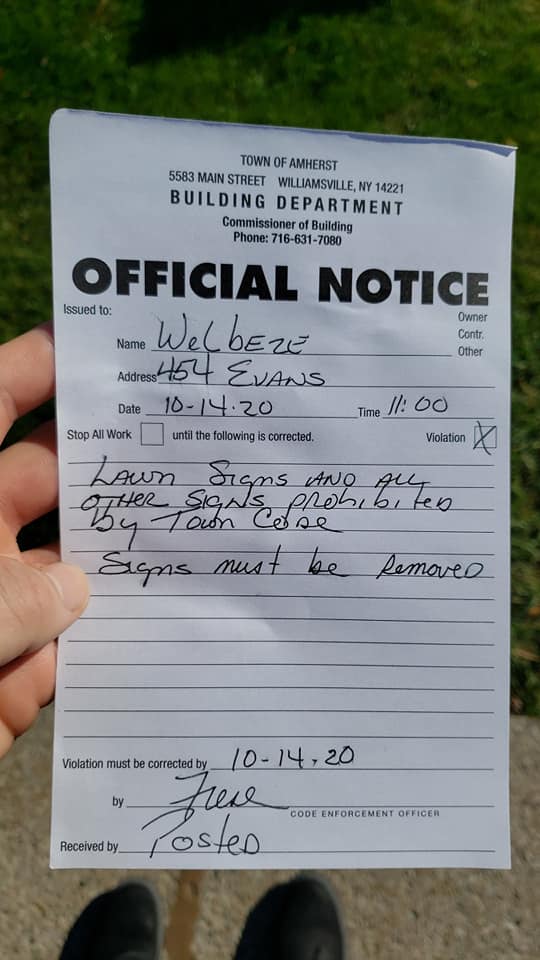 TOWN OF AMHERST
5583 MAIN STREET WILLIAMSVILLE, NY 14221
BUILDING DEPARTMENT
Commissioner of Building
Phone: 716-631-7080
OFFICIAL NOTICE
Issued to:
Owner
Contr.
Other
Name WelbEZE
Address 454 EVANS
Date 10-14-20 Time 11:00
Stop All Work until the following is corrected. Violation X
LAWN SIGNS AND ALL
OTHER SIGNS prohibited
by Town Code
Signs must be Removed
Violation must be corrected by 10-14-20
by
CODE ENFORCEMENT OFFICER
Received by Posted